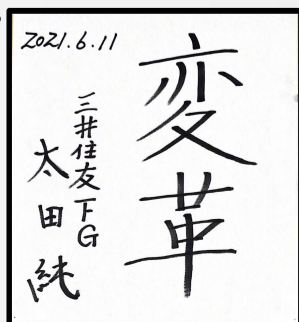 2021.6.11
変革
三井住友FG
太田純